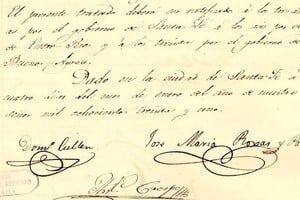 El presente tratado deberá ser ratificado á los tres di
as por el gobierno de Santa-Fé á los seis por el
de Entre-Rios y á los treinta por el gobierno de
Buenos-Ayres.
Dado en la ciudad de Santa-Fé á
cuatro dias del mes de enero del año de nuestro
señor mil ochocientos treinta y uno.
Domº Cullen
José Maria Roxas y P
Crespo